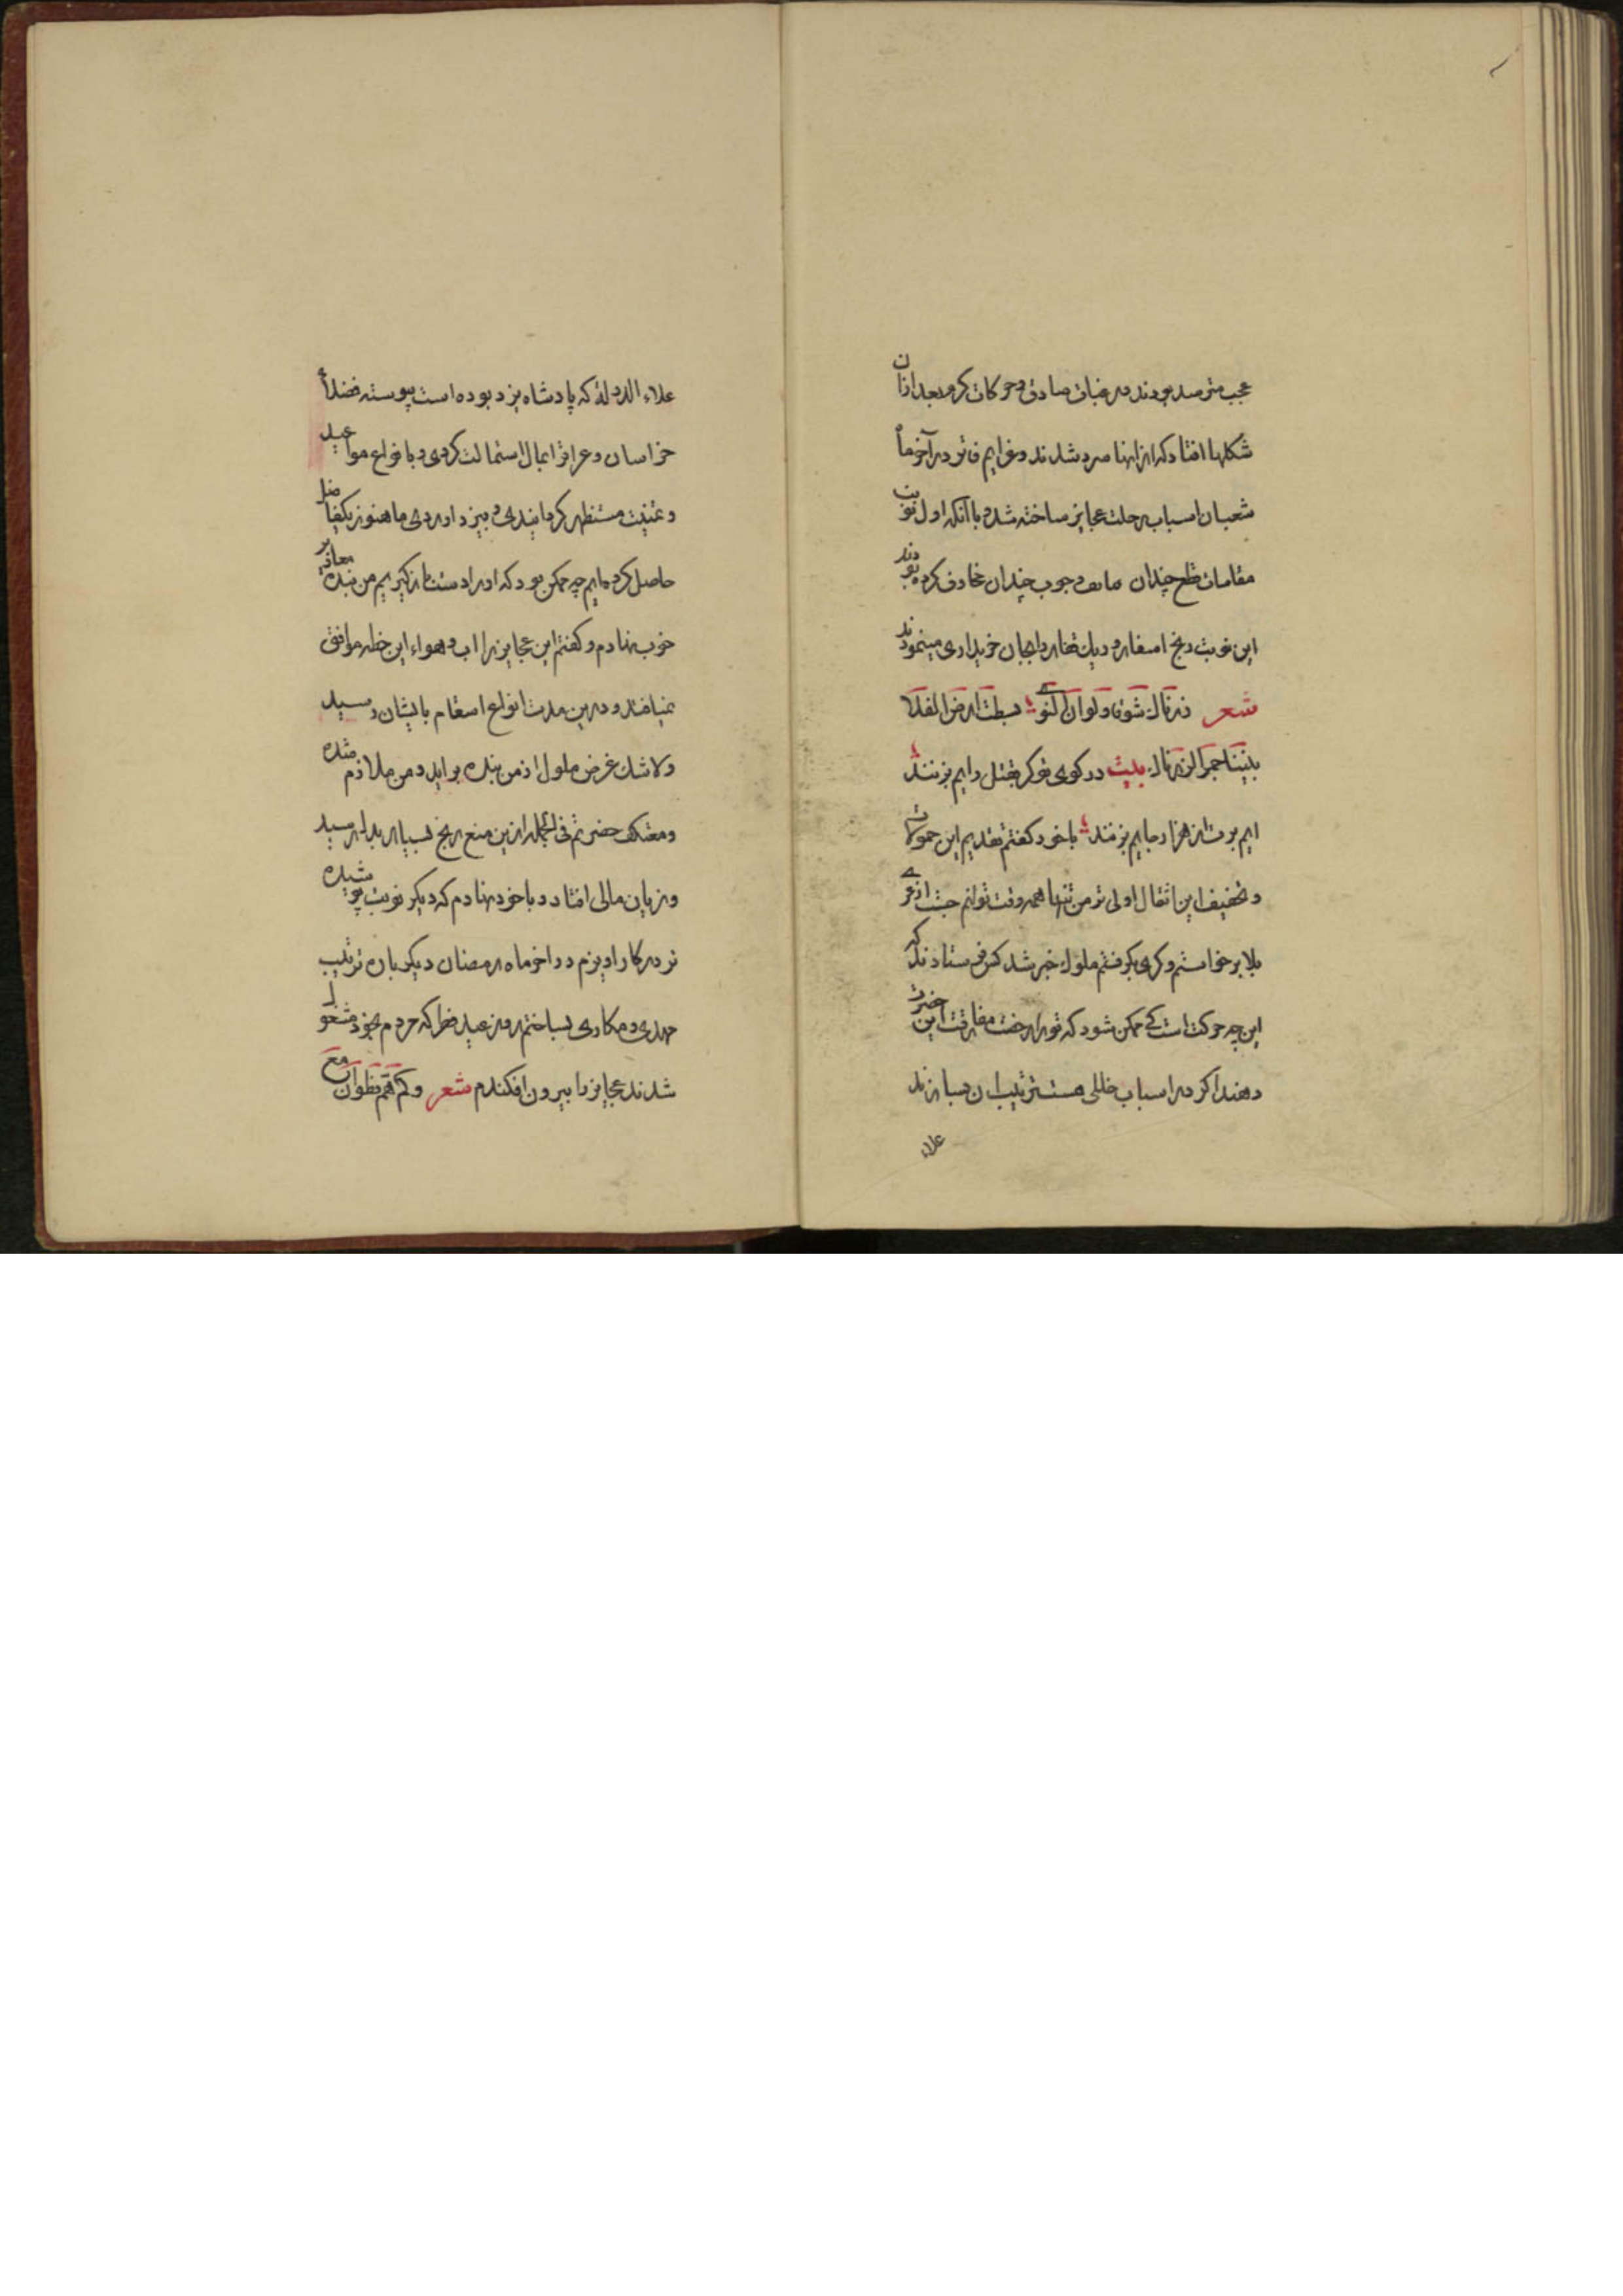 عجب مترصد بودند و رغبات صادق و حرکات کرم بعد ازان
شکلها افتاد که ازانها سرد شدند و غرایم فاتر در آخر ماه
شعبان اسباب رحلت عجایز ساخته شد و با آنکه اول نوبت
مقامات چندان و جوب چندان مخاوف کرده بودند
این نوبت رنج اسفار و دیک قفار را بجان خریداری مینمودند
شعر نزرناك شوقا ولو ان النوی بسطت ارض الفلا
بیننا جمرا لزرناك بیت در کوی تو کر بقتل رایم بزنند
ایم برت از هزار جایم بزنند با خود کفتم تقدیم این حمولات
و تخفیف این اثقال اولی تر من تنها همه وقت توانم جست از غر
بلا برخواستم و کری بکرفتم ملوك خبر شد کس فرستادند که
این چه حرکت است کی ممکن شود که تو را رخصت مفارقت این حضرت
دهند اکر در اسباب خللی هست ترتیب ان بسازند
علاء
علاء الدوله که پادشاه یزد بوده است پیوسته فضلاء
خراسان و عراق را استمالت کردی و بانواع مواعید
و مستظهر کردانیدی و بیزد اوردی ما هنوز یکفاضل
حاصل کرده ایم چه ممکن بود که او را دست باز کیریم من بنده معاذیر
خوب نهادم و کفتم این عجایز را اب و هواء این خطه موافق
نیافتد و درین مدت انواع اسقام بایشان رسید
ولا شك غرض ملوك از من بنده براید و من ملازم شده
و معتکف حضرتم فی الجمله ازین منع رنج بسیار بدل رسید
و زیان مالی افتاد و با خود نهادم که دیکر نوبت پوشیده
تر در کار اویزم در اخر ماه رمضان دیکر باره ترتیب
مهدی و مکاری بساختم روز عید فطر که مردم بخود مشغول
شدند عجایز را بیرون افکندم شعر وکم هم نظوان مع